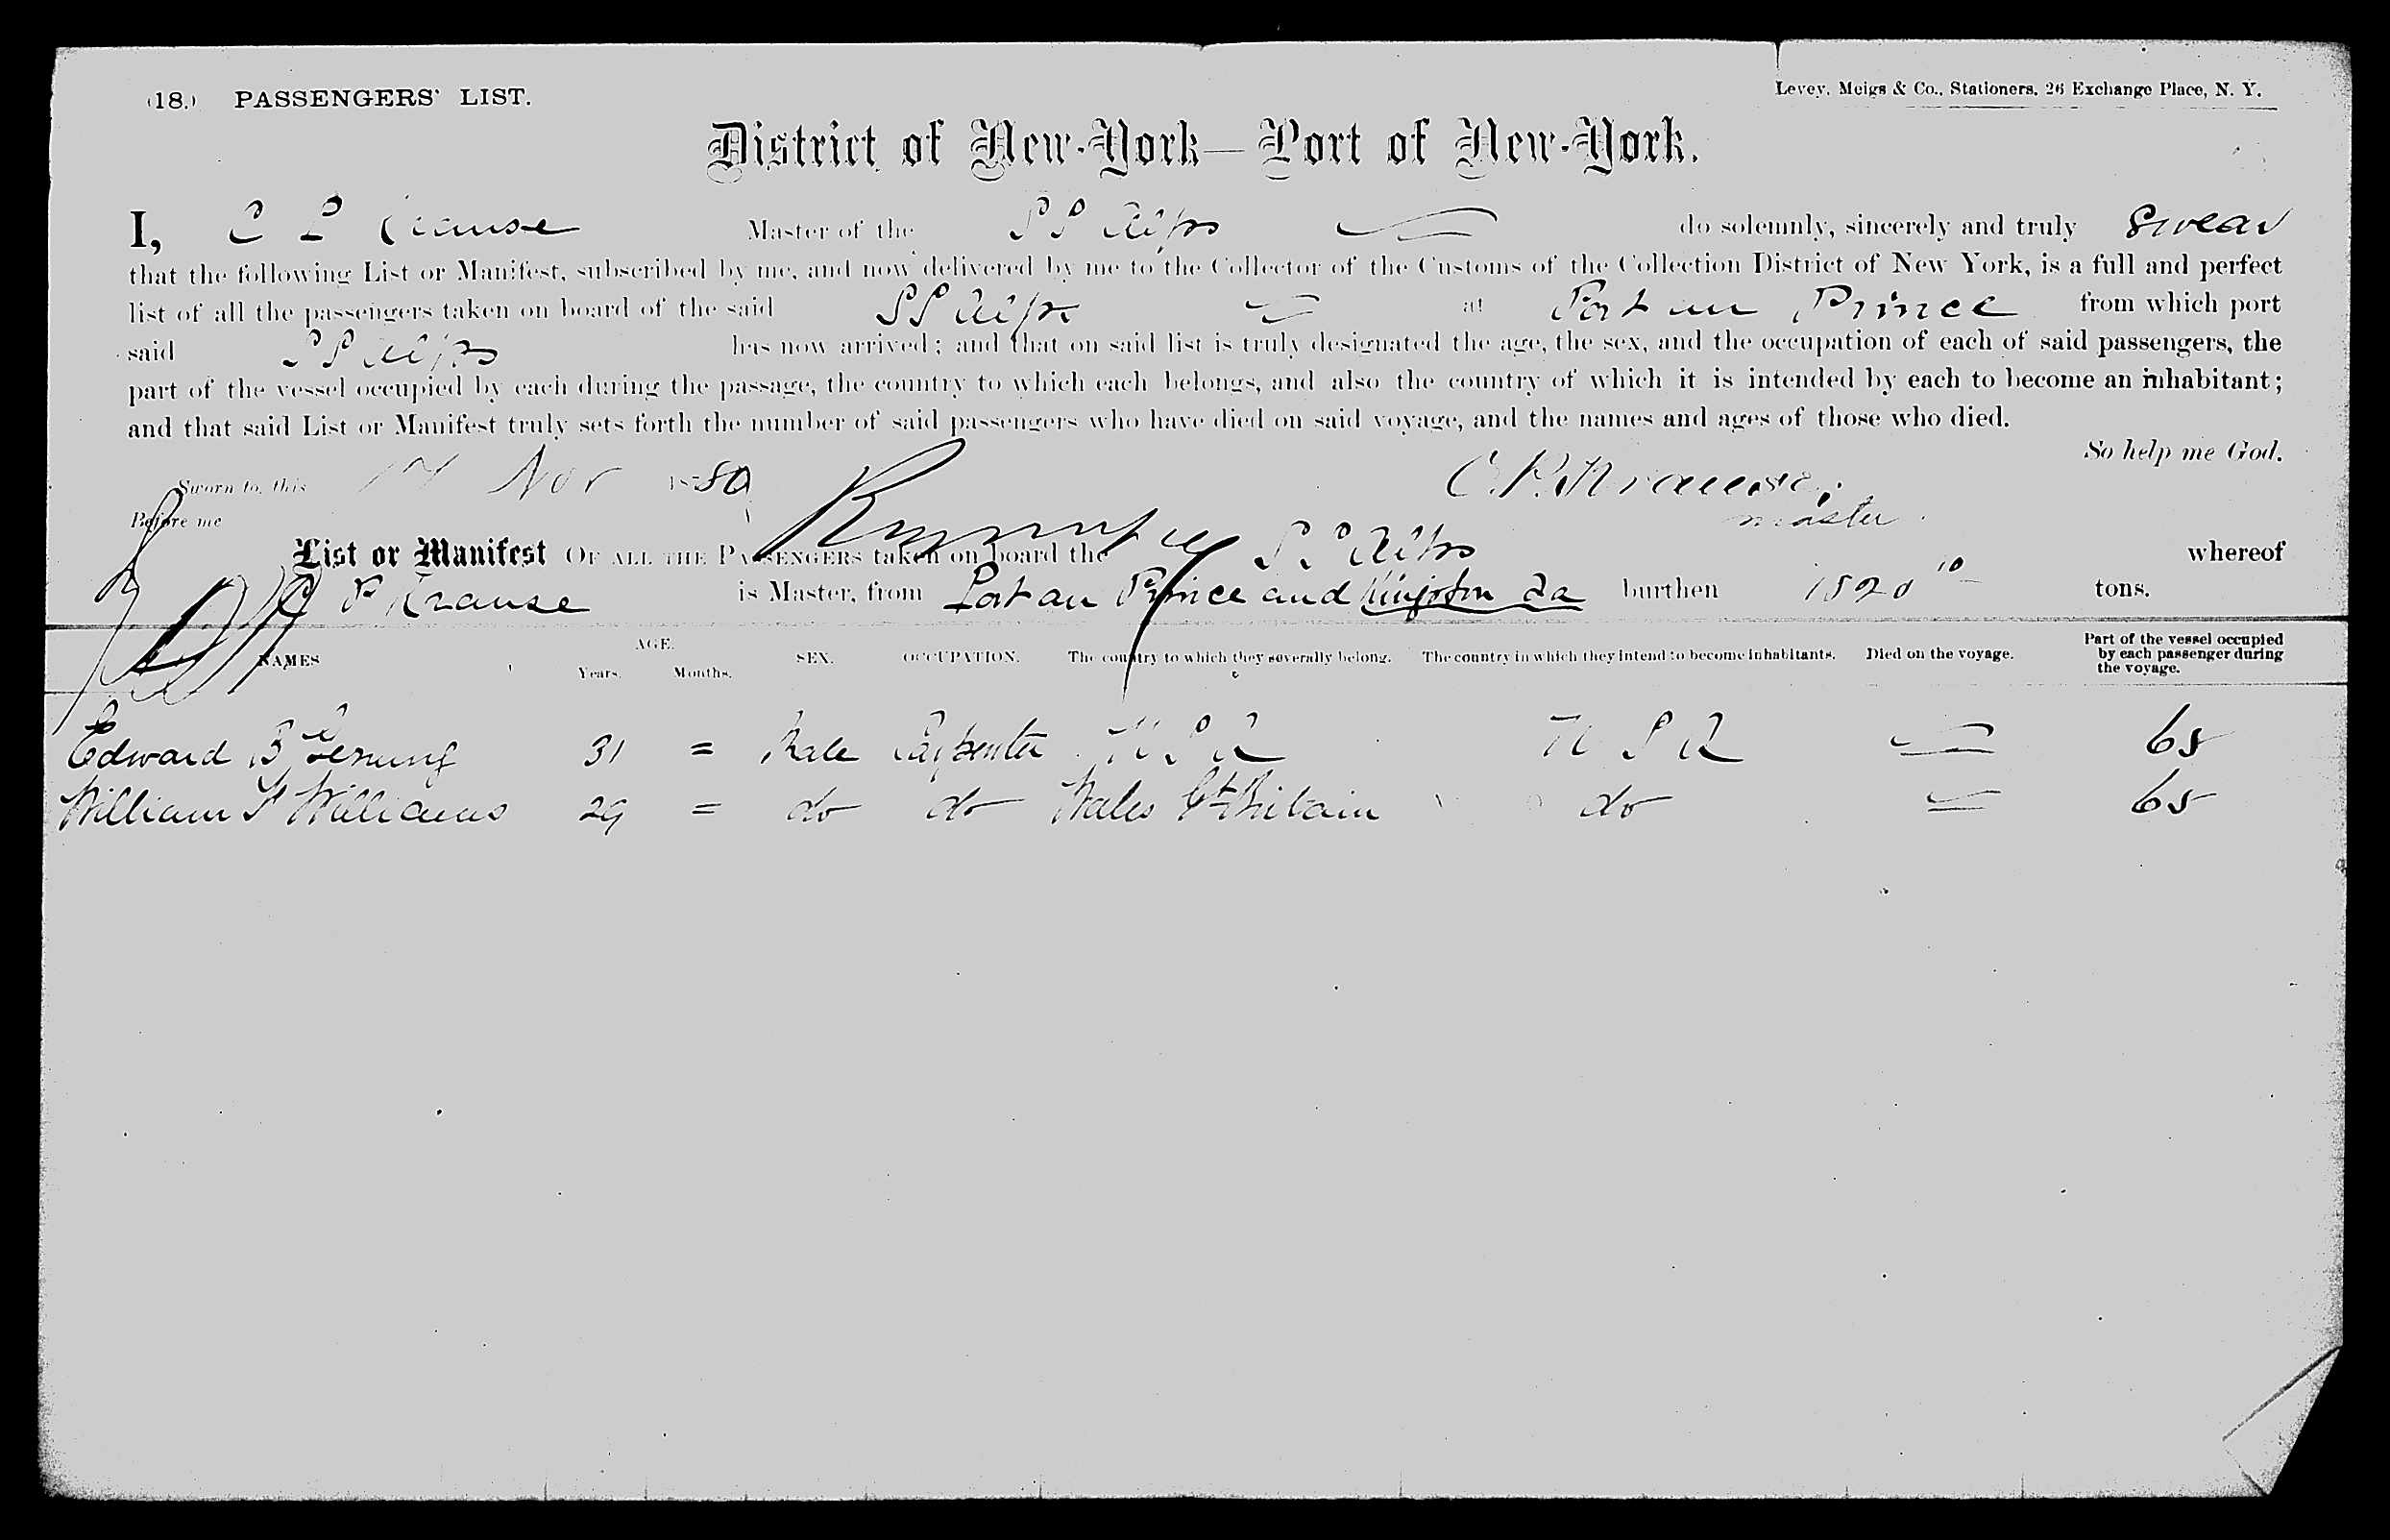 (18.) PASSENGERS' LIST.
Levey, Meigs & Co., Stationers, 26 Exchange Place, N. Y.
District of New-York—Port of New-York.
I, C P Krause Master of the SS Alps do solemnly, sincerely and truly Swear
that the following List or Manifest, subscribed by me, and now delivered by me to the Collector of the Customs of the Collection District of New York, is a full and perfect
list of all the passengers taken on board of the said SS Alps at Port au Prince from which port
said SS Alps has now arrived; and that on said list is truly designated the age, the sex, and the occupation of each of said passengers, the
part of the vessel occupied by each during the passage, the country to which each belongs, and also the country of which it is intended by each to become an inhabitant;
and that said List or Manifest truly sets forth the number of said passengers who have died on said voyage, and the names and ages of those who died.
So help me God.
Sworn to, this 17 Nov 1880 C. P. Krause
Before me master
List or Manifest OF ALL THE PASSENGERS taken on board the SS Alps whereof
C P Krause is Master, from Port au Prince and Kingston Ja burthen tons.
NAMES AGE. Years. Months. SEX. OCCUPATION. The country to which they severally belong. The country in which they intend to become inhabitants. Died on the voyage. Part of the vessel occupied by each passenger during the voyage.
Edward B 31 = Male Carpenter U S A U S A
William H Williams 29 = do do Wales Gt Britain do